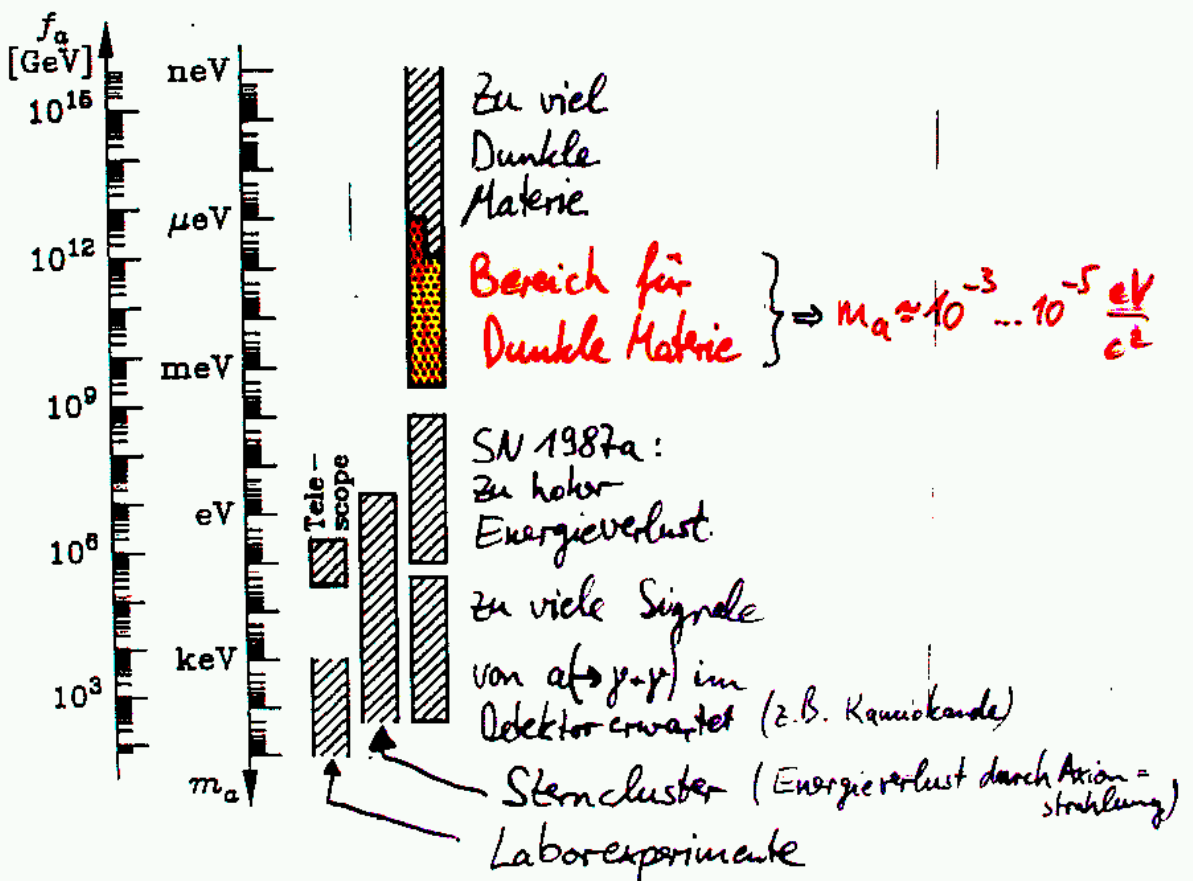 f_a
[GeV]
10^15
10^12
10^9
10^6
10^3
neV
μeV
meV
eV
keV
m_a
Tele-
scope
Zu viel
Dunkle
Materie
Bereich für
Dunkle Materie
⇒ m_a ≈ 10^-3 ... 10^-5 eV/c^2
SN 1987a:
Zu hoher
Energieverlust.
Zu viele Signale
von a(→γ+γ) im
Detektor erwartet (z.B. Kamiokande)
Sterncluster (Energieverlust durch Axion=
strahlung)
Laborexperimente